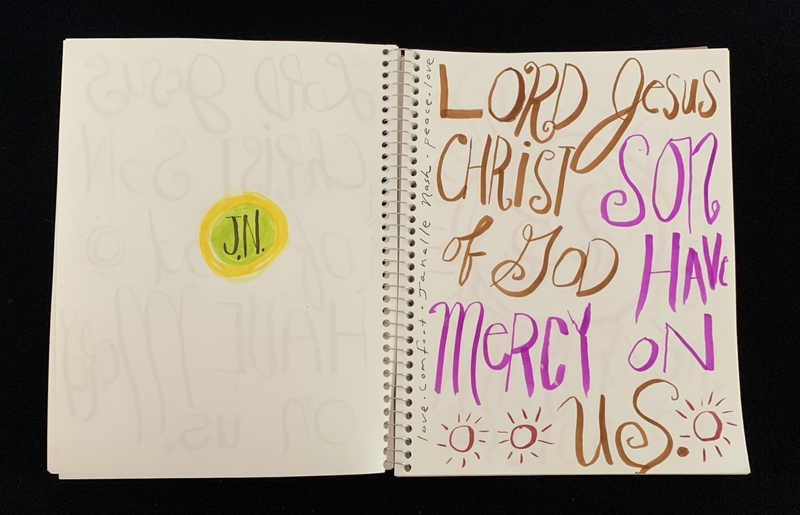 J.N.
love. comfort. Janelle Nash. peace. love
LORD Jesus
CHRIST SON
of GOD HAVE
MERCY ON
US.